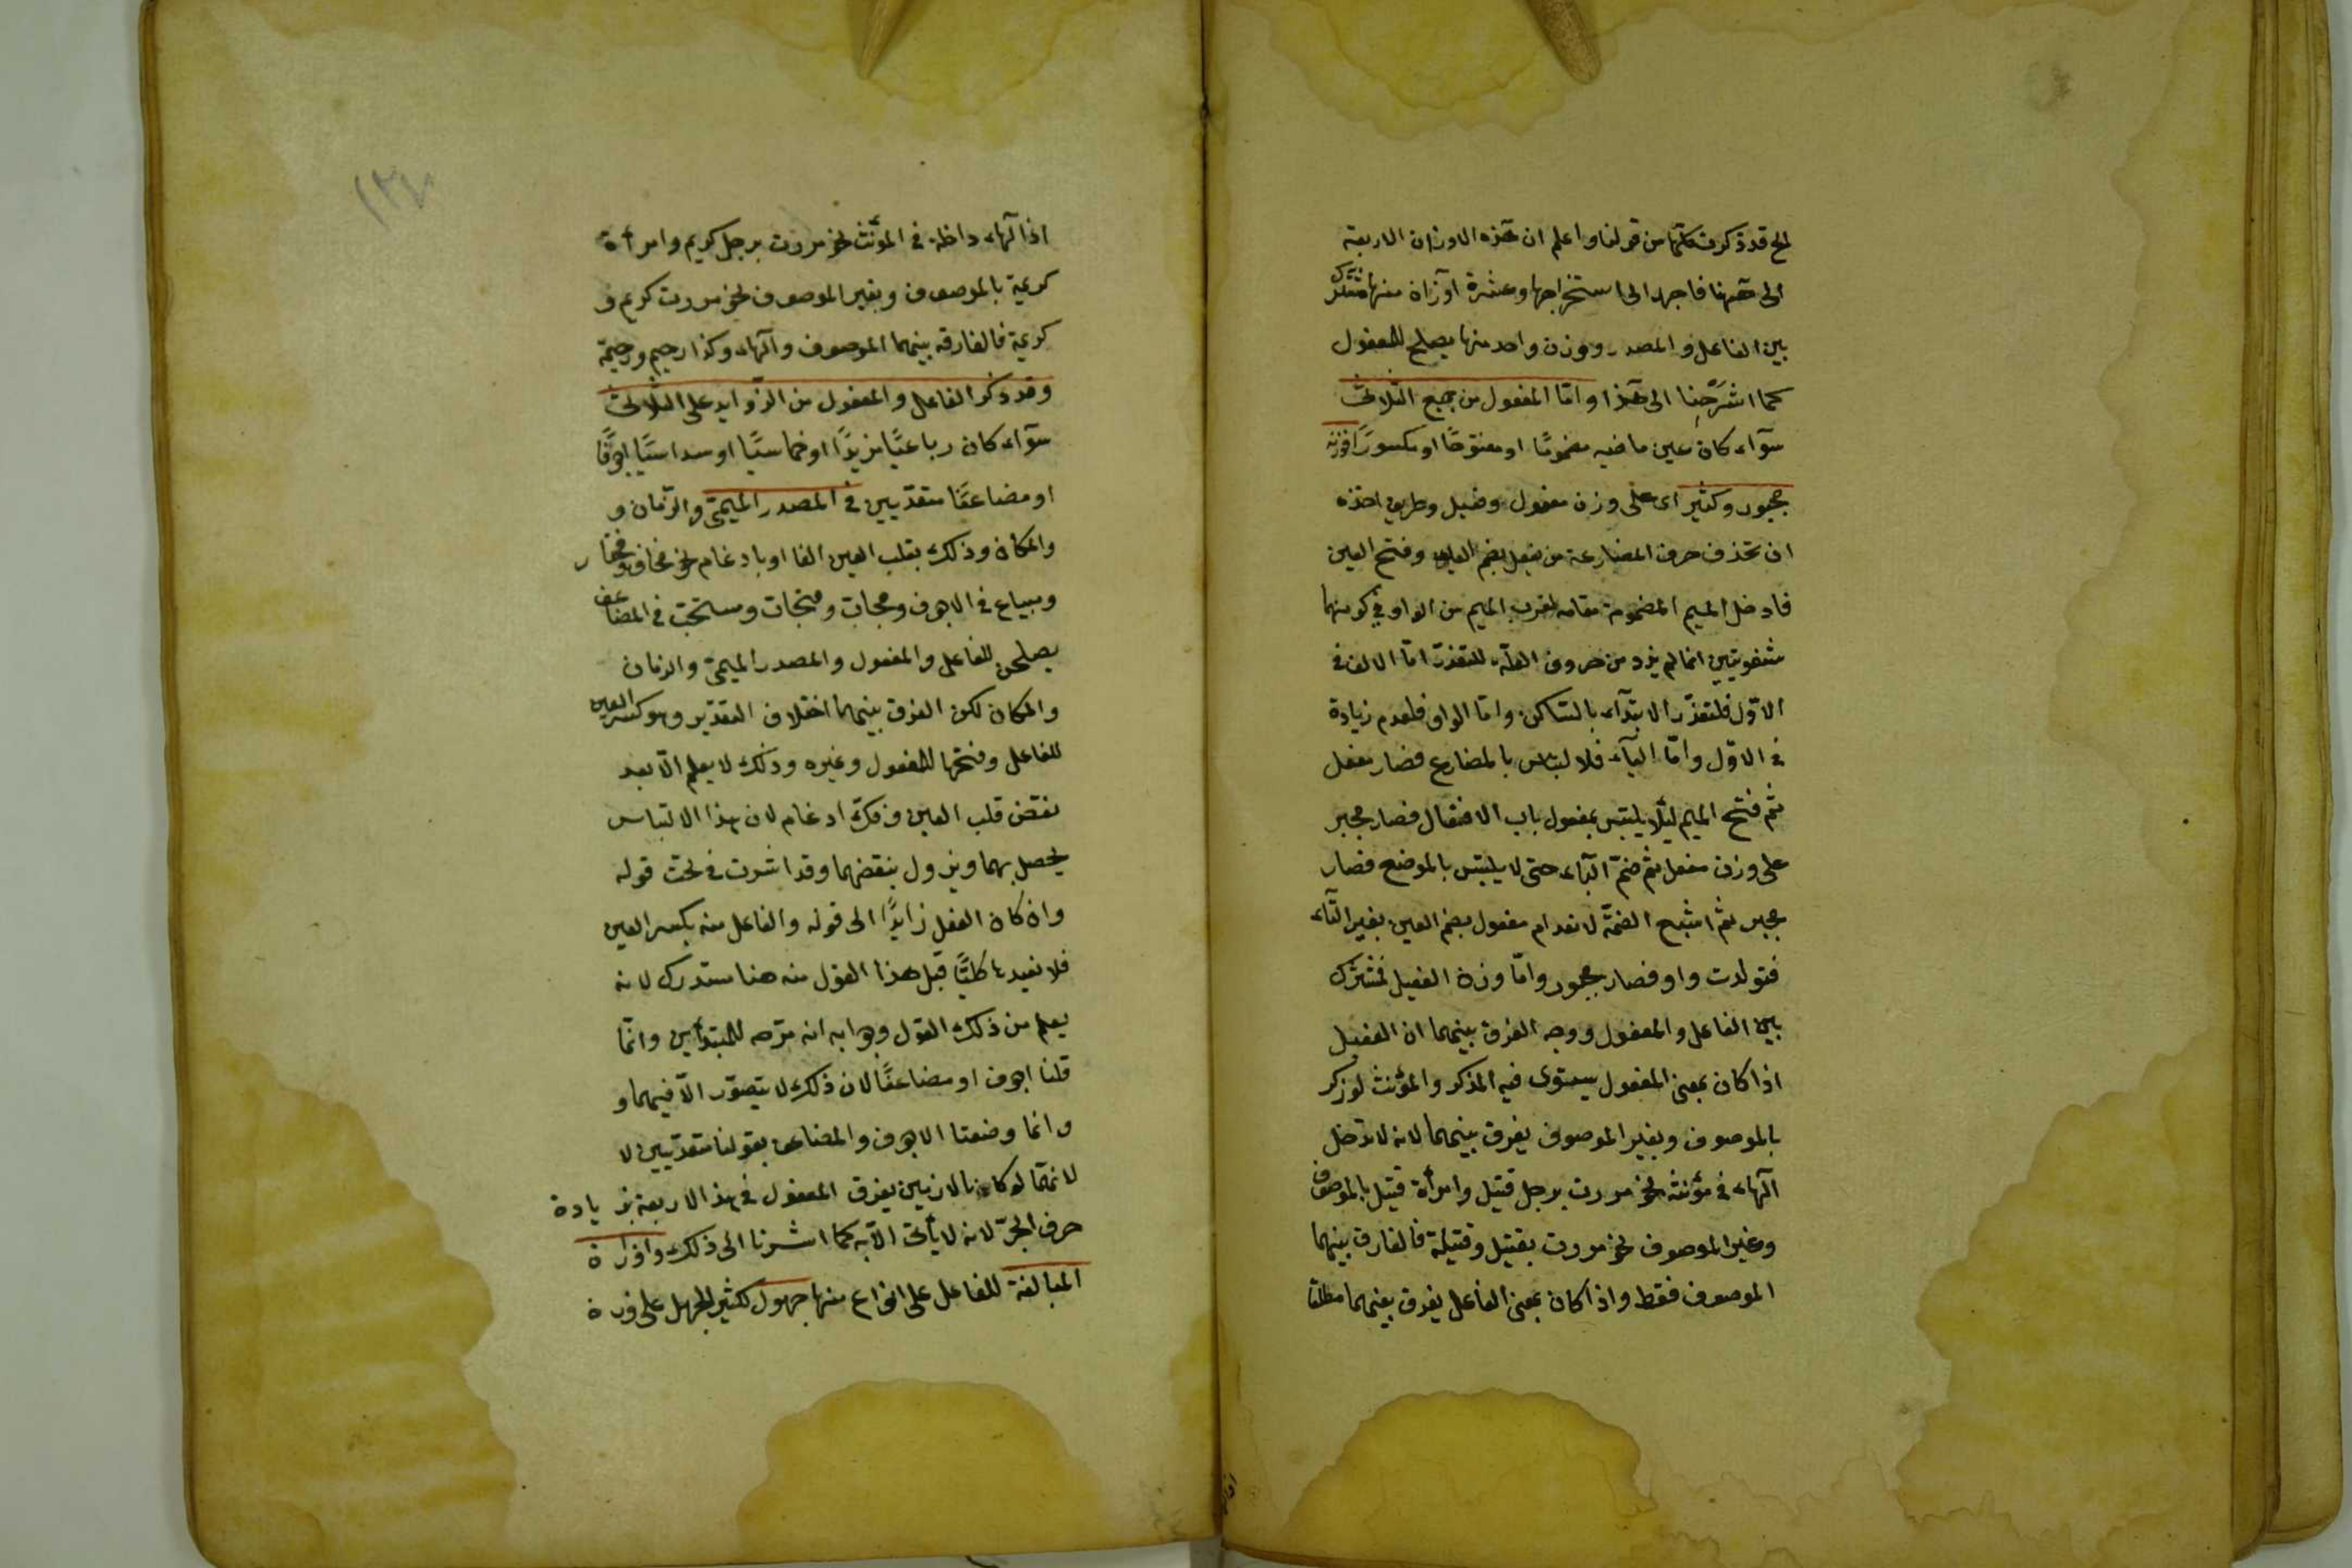 الخ قد ذكرت كلها من قولنا واعلم ان هذه الاوزان الاربعة
الى ههنا فاجهد الى استخراجها وعشرة اوزان منها مشترك
بين الفاعل والمصدر ووزن واحد منها يصلح للمفعول
كما اشرحنا الى هذا واما المفعول من جميع الثلاثى
سوآء كان عين ماضيه مضموما او مفتوحا او مكسورا فوزنه
مجبور وكثير اى على وزن مفعول وفعيل وطريق اخذه
ان تحذف حرف المضارعة من يفعل بضم الياء وفتح العين
فادخل الميم المضمومة مقامه لقرب الميم من الواو فى كونهما
شفويتين انما لم يزد من حروف العلة للتعذر اما الالف فى
الاول فلتعذر الابتدآء بالساكن واما الواو فلعدم زيادة
فى الاول واما اليآء فلالتباس بالمضارع فصار مفعل
ثم فتح الميم لئلا يلتبس بمفعول باب الافعال فصار مجبر
على وزن مفعل ثم ضم البآء حتى لا يلتبس بالموضع فصار
مجبر ثم اشبع الضمة لانعدام مفعول بضم العين بغير التآء
فتولدت واو فصار مجبور واما وزن الفعيل فمشترك
بين الفاعل والمفعول ووجه الفرق بينهما ان الفعيل
اذا كان بمعنى المفعول يستوى فيه المذكر والمؤنث لو ذكر
بالموصوف وبغير الموصوف يفرق بينهما لانه لا تدخل
الهآء فى مؤنثه نحو مررت برجل قتيل وامرأة قتيل بالموصوف
وغير الموصوف نحو مررت بقتيل وقتيلة فالفارق بينهما
الموصوف فقط واذا كان بمعنى الفاعل يفرق بينهما مطلقا
اذا لهآء داخلة فى المؤنث نحو مررت برجل كريم وامرأة
كريمة بالموصوف وبغير الموصوف نحو مررت كريم و
كريمة فالفارقه بينهما الموصوف والهآء وكذا رحيم ورحيمة
وقد ذكر الفاعل والمفعول من الزوايد على الثلاثى
سوآء كان رباعيا مزيدا او خماسيا او سداسيا اجوفا
او مضاعفا متعديين فى المصدر الميمى والزمان و
والمكان وذلك بقلب العين الفا او بادغام نحو مخاف ومختار
ومبياع فى الاجوف ومجاب ومنجاب ومستحب فى المضاعف
يصلحن للفاعل والمفعول والمصدر الميمى والزمان
والمكان لكن الفرق بينهما اختلاف التقدير وهو كسر العين
للفاعل وفتحها للمفعول وغيره وذلك لا يعلم الا بعد
نقض قلب العين وفك ادغام لان هذا الالتباس
يحصل بهما ويزول بنقضهما وقد اشرت فى تحت قوله
وان كان الفعل زايدا الى قوله والفاعل منه بكسر العين
فلا نعيدها كليا قبل هذا القول منه هنا مستدرك لانه
يعلم من ذلك القول وجوابه انه صرحه للمبتدأين وانما
قلنا اجوف او مضاعفا لان ذلك لا يتصور الا فيهما و
وانما وضعنا الاجوف والمضاعف بقولنا متعديين لا
لانهما لو كانا لازمين يفرق المفعول فى هذا الاربعة بزيادة
حرف الجر لانه لا يأتى الا به كما اشرنا الى ذلك واوزان
المبالغة للفاعل على انواع منها جهول لكثير الجهل على وزن